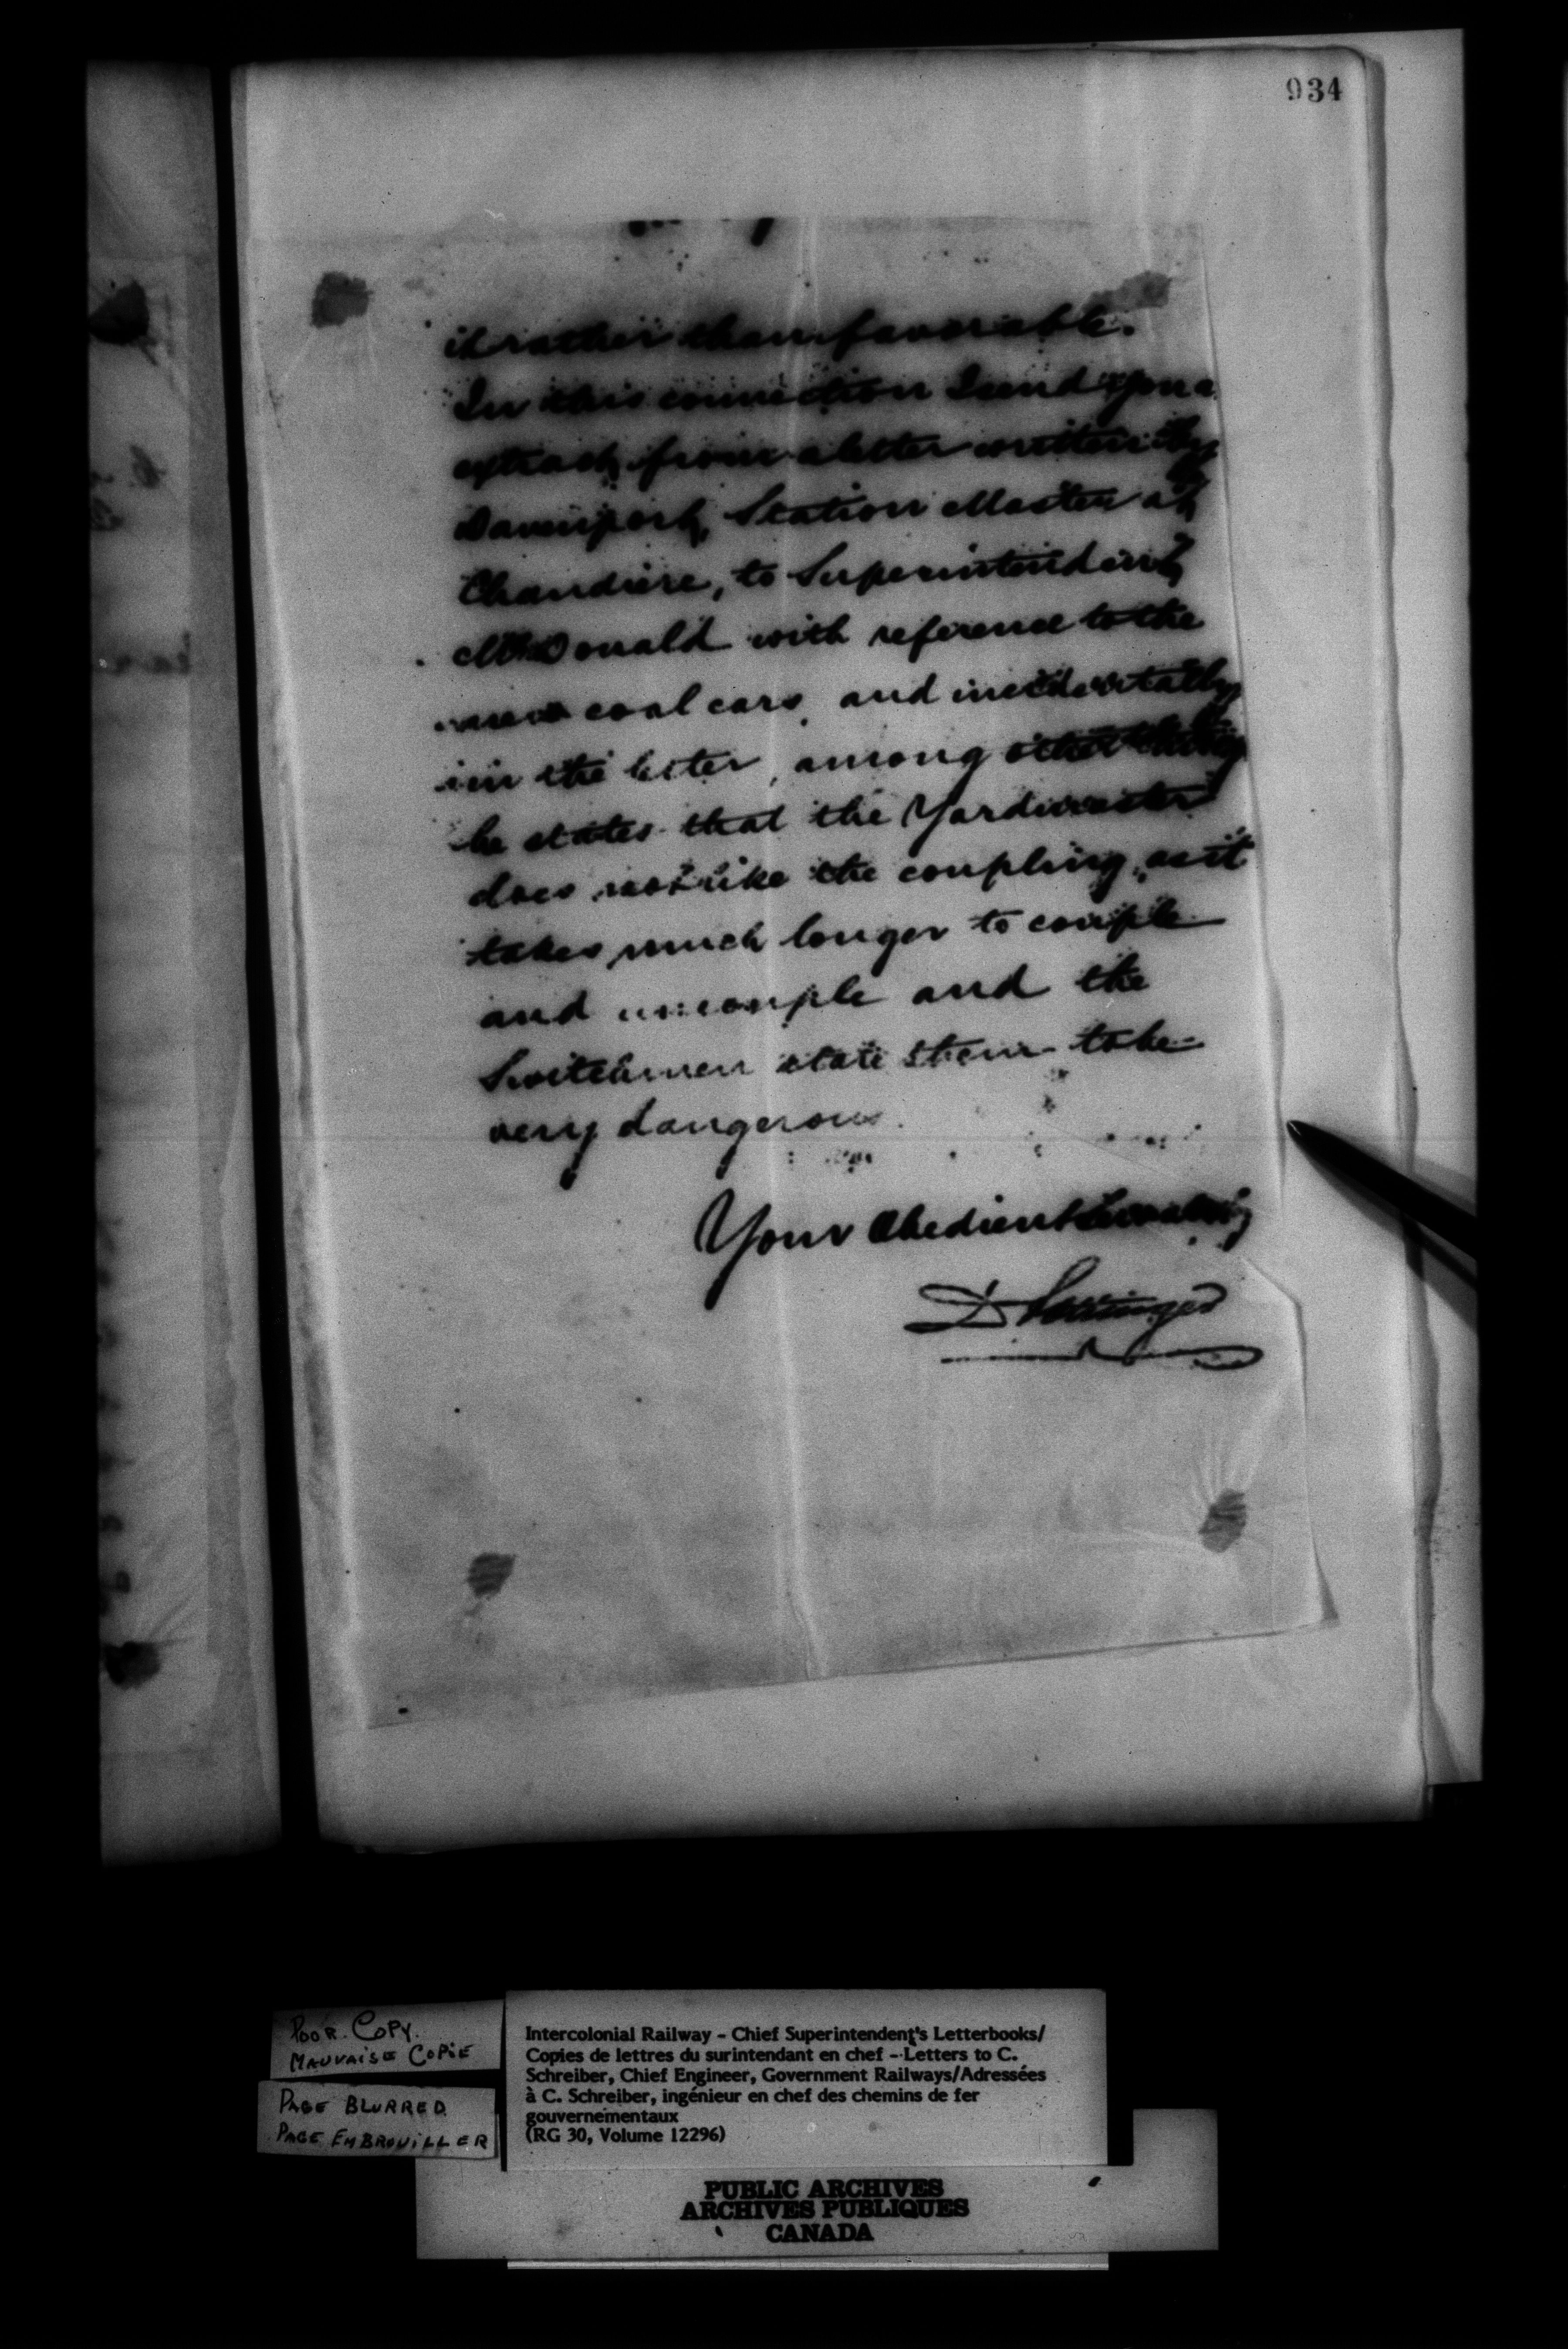 934
it rather than favorable.
In this connection I send you a
extract from a letter written by
Davenport, Station Master at
Chaudiere, to Superintendent
McDonald with reference to the
new coal cars, and incidentally
in the letter, among other things
he states that the Yardmaster
does not like the coupling, as it
takes much longer to couple
and uncouple and the
Switchmen state them to be
very dangerous.
Your Obedient Servant
D Pottinger
POOR COPY.
MAUVAISE COPIE
PAGE BLURRED
PAGE EMBROUILLER
Intercolonial Railway - Chief Superintendent's Letterbooks/
Copies de lettres du surintendant en chef - Letters to C.
Schreiber, Chief Engineer, Government Railways/Adressées
à C. Schreiber, ingénieur en chef des chemins de fer
gouvernementaux
(RG 30, Volume 12296)
PUBLIC ARCHIVES
ARCHIVES PUBLIQUES
CANADA